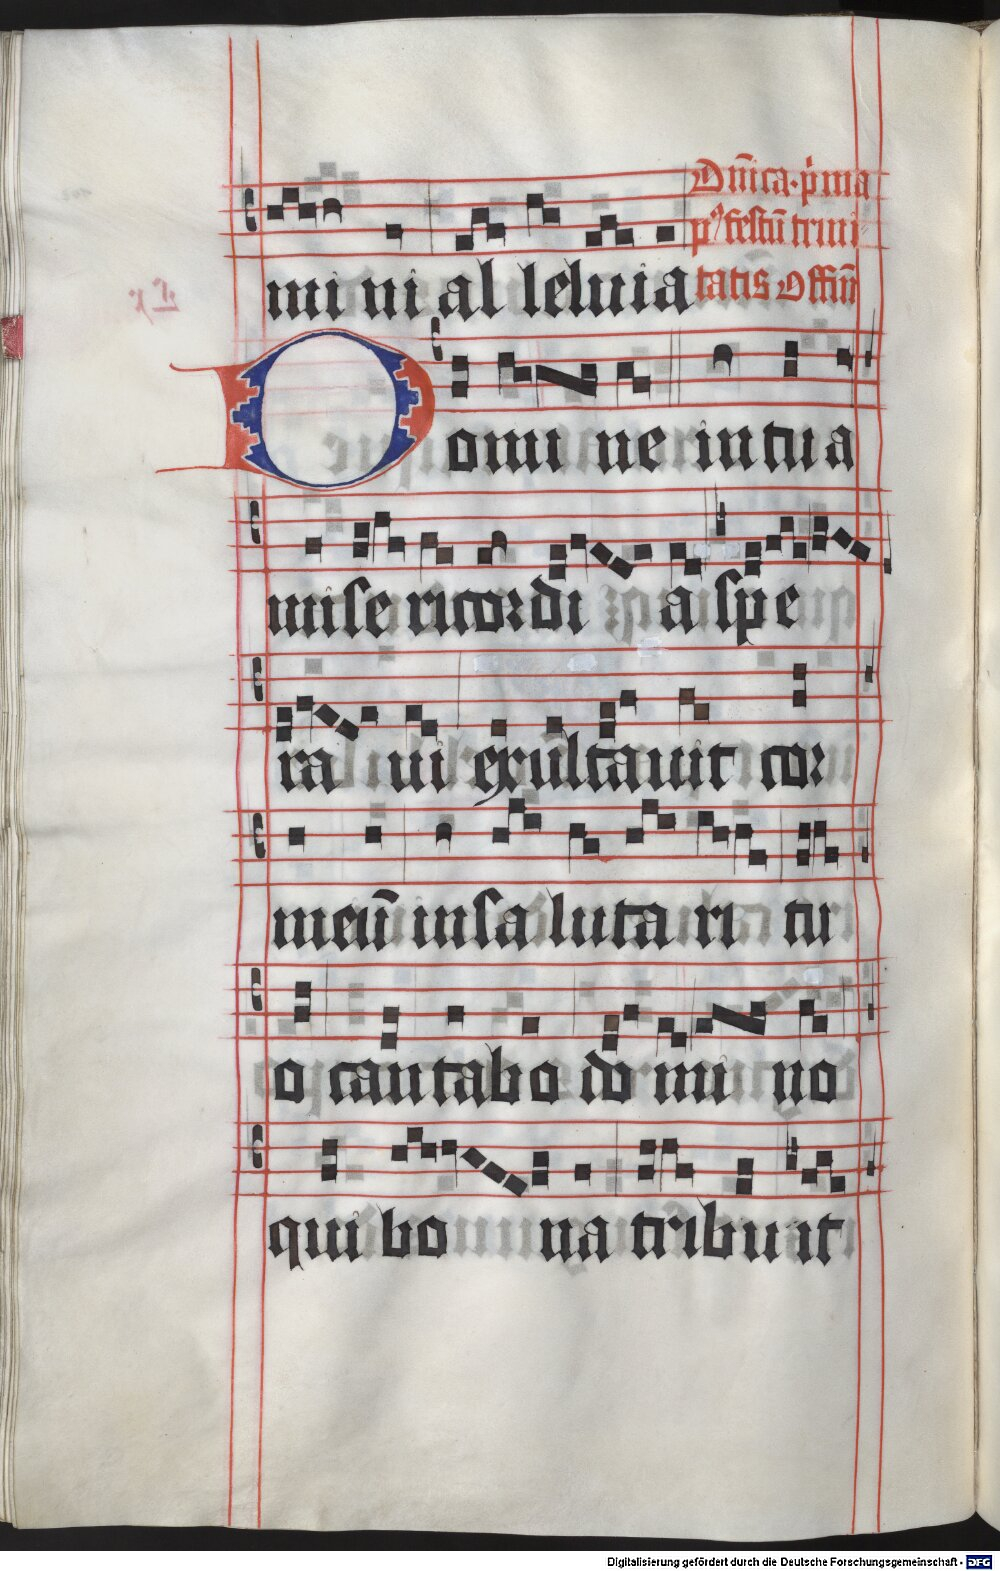 Dn̄ica · p̄ma
pꝰ festū trini
mi ni al leluia tatis Offm̄
Domi ne in tu a
mise ricordi a spe
ra ui exultauit cor
meū in sa luta ri tu
o cantabo do mi no
qui bo na tribu it
Digitalisierung gefördert durch die Deutsche Forschungsgemeinschaft - DFG